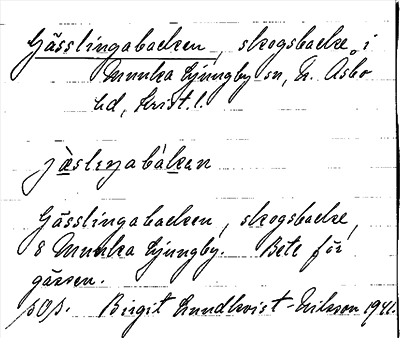 Gässlingabacken, skogsbacke i
Munka Ljungby sn, N. Åsbo
hd, Krist. l.
jässliŋabàkan
Gässlingabacken, skogsbacke,
S Munka Ljungby. Bete för
gässen.
Birgit Lundkvist-Eriksson 1941.